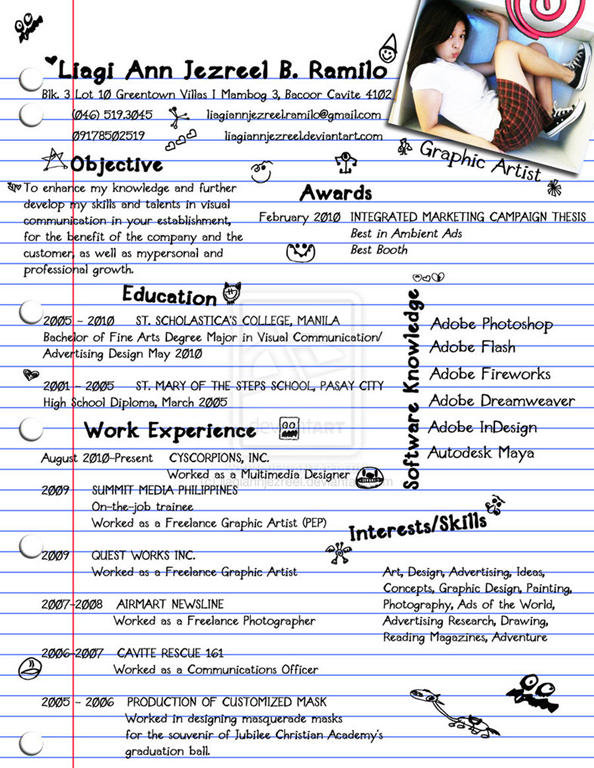 Liagi Ann Jezreel B. Ramilo
Blk. 3 Lot 10 Greentown Villas I Mambog 3, Bacoor Cavite 4102
(046) 519.3045 liagiannjezreel.ramilo@gmail.com
09178502519 liagiannjezreel.deviantart.com
Graphic Artist
Objective
To enhance my knowledge and further
develop my skills and talents in visual
communication in your establishment,
for the benefit of the company and the
customer, as well as mypersonal and
professional growth.
Awards
February 2010 INTEGRATED MARKETING CAMPAIGN THESIS
Best in Ambient Ads
Best Booth
Education
2005 - 2010 ST. SCHOLASTICA'S COLLEGE, MANILA
Bachelor of Fine Arts Degree Major in Visual Communication/
Advertising Design May 2010
2001 - 2005 ST. MARY OF THE STEPS SCHOOL, PASAY CITY
High School Diploma, March 2005
Software Knowledge
Adobe Photoshop
Adobe Flash
Adobe Fireworks
Adobe Dreamweaver
Adobe InDesign
Autodesk Maya
Work Experience
August 2010-Present CYSCORPIONS, INC.
Worked as a Multimedia Designer
2009 SUMMIT MEDIA PHILIPPINES
On-the-job trainee
Worked as a Freelance Graphic Artist (PEP)
2009 QUEST WORKS INC.
Worked as a Freelance Graphic Artist
2007-2008 AIRMART NEWSLINE
Worked as a Freelance Photographer
2006-2007 CAVITE RESCUE 161
Worked as a Communications Officer
2005 - 2006 PRODUCTION OF CUSTOMIZED MASK
Worked in designing masquerade masks
for the souvenir of Jubilee Christian Academy's
graduation ball.
Interests/Skills
Art, Design, Advertising, Ideas,
Concepts, Graphic Design, Painting,
Photography, Ads of the World,
Advertising Research, Drawing,
Reading Magazines, Adventure
deviantART